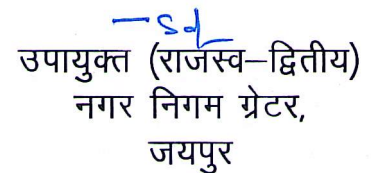 -Sd
उपायुक्त (राजस्व–द्वितीय)
नगर निगम ग्रेटर,
जयपुर